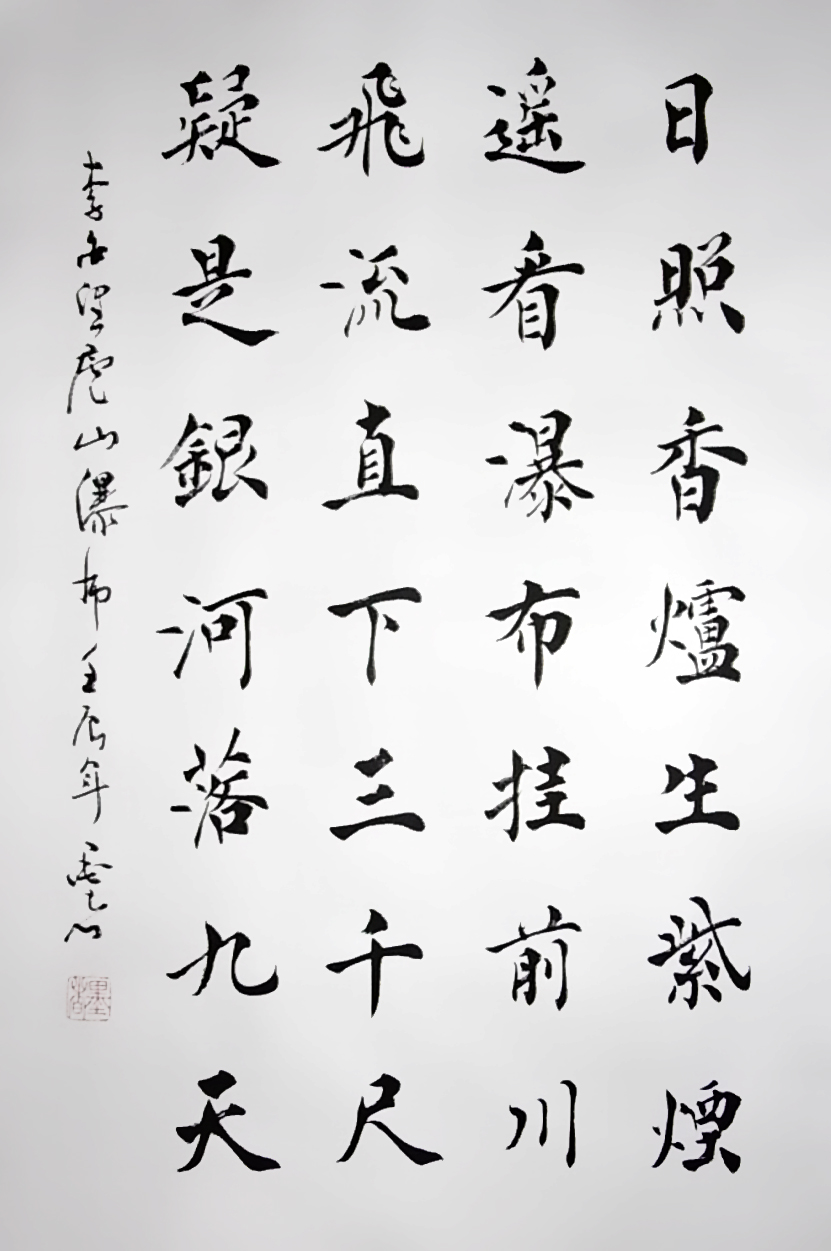 日照香爐生紫煙
遥看瀑布挂前川
飛流直下三千尺
疑是銀河落九天
李白望廬山瀑布壬辰年雲心